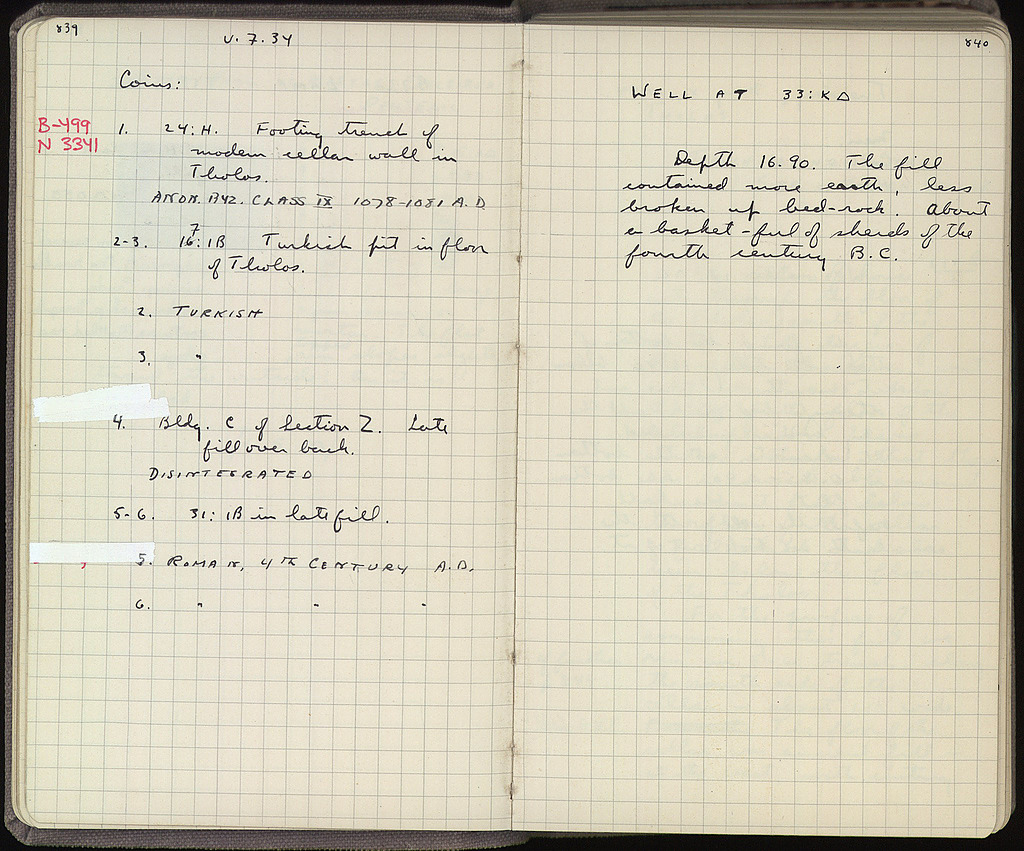 839
v. 7. 34
Coins:
B-499
N 3341
1. 24: H. Footing trench of
modern cellar wall in
Tholos.
ANON. BYZ. CLASS IX 1078-1081 A.D
7
2-3. 16: IB Turkish pit in floor
of Tholos.
2. TURKISH
3. "
4. Bldg. C of Section Z. Late
fill over bank.
DISINTEGRATED
5-6. 31: IB in late fill.
5. ROMAN, 4TH CENTURY A.D.
6. " " "
840
WELL AT 33: KΔ
Depth 16.90. The fill
contained more earth, less
broken up bed-rock. About
a basket-ful of sherds of the
fourth century B.C.